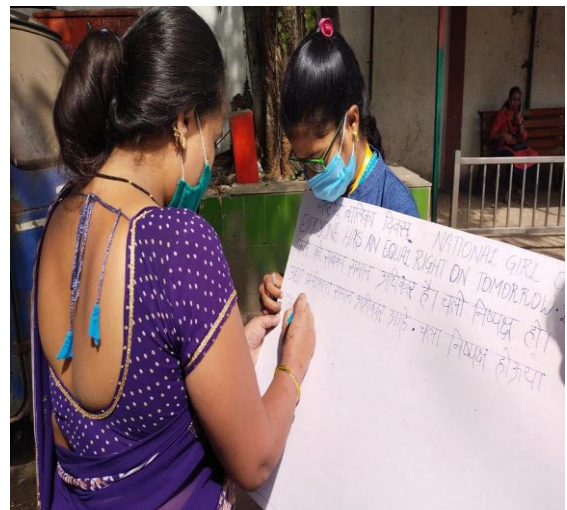 बालिका दिवस, NATIONAL GIRL
EVERYONE HAS AN EQUAL RIGHT ON TOMORROW.
को सबका समान अधिकार है। चलो निष्पक्ष हो।
समान अधिकार आहे. चला निष्पक्ष होऊया